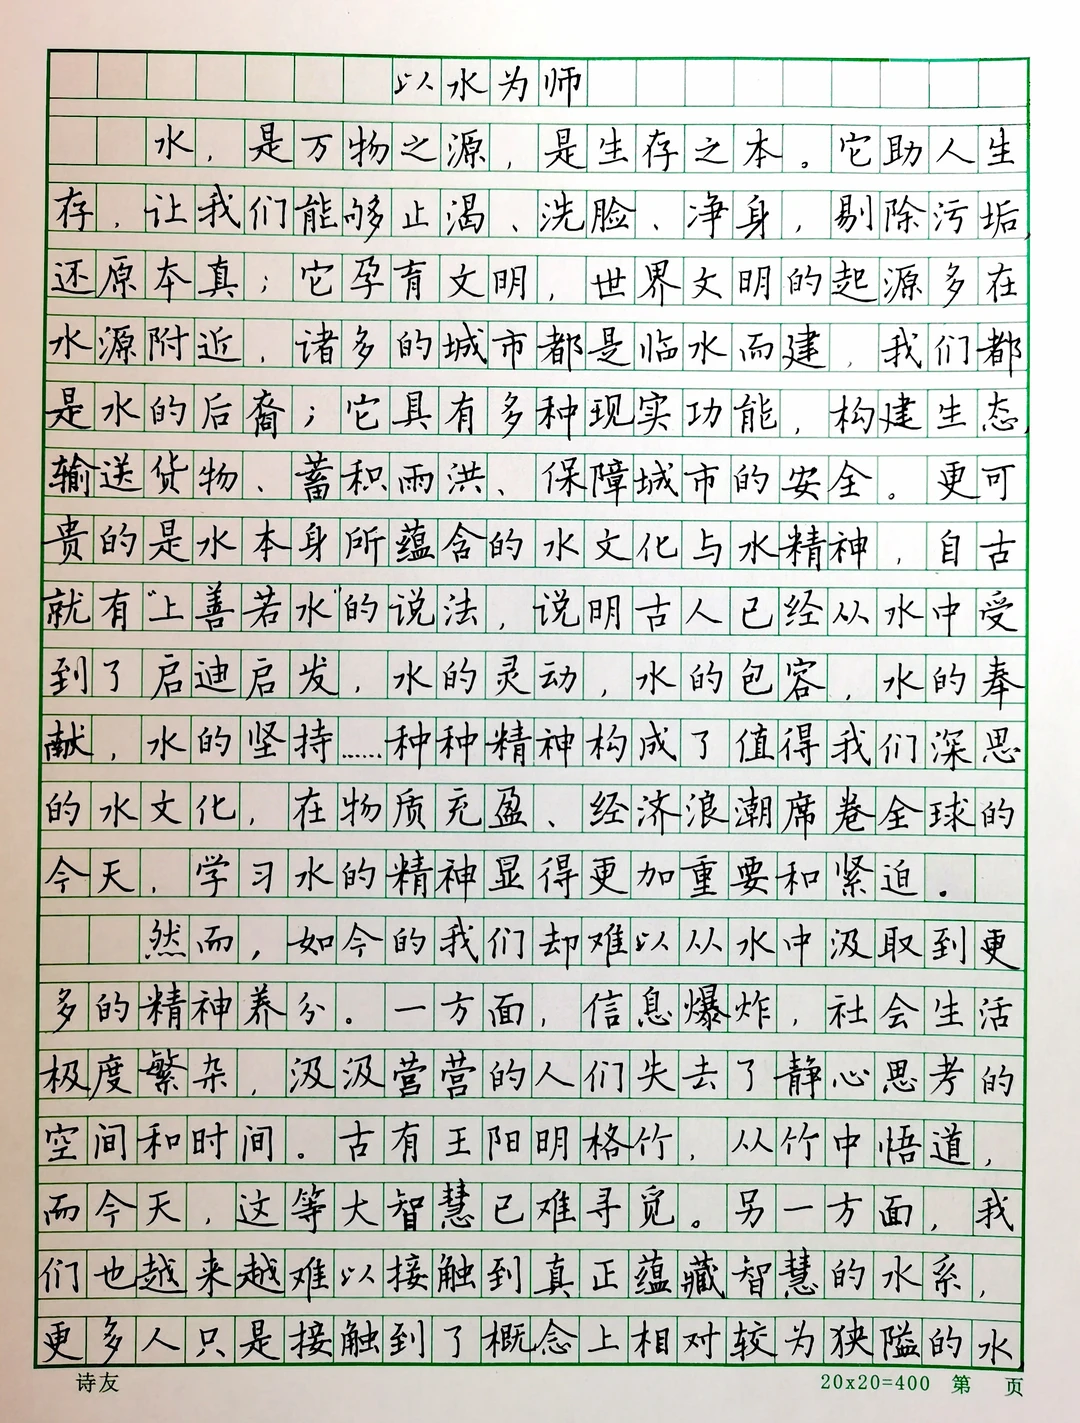 以水为师
水，是万物之源，是生存之本。它助人生
存，让我们能够止渴、洗脸、净身，剔除污垢，
还原本真；它孕育文明，世界文明的起源多在
水源附近，诸多的城市都是临水而建，我们都
是水的后裔；它具有多种现实功能，构建生态，
输送货物、蓄积雨洪、保障城市的安全。更可
贵的是水本身所蕴含的水文化与水精神，自古
就有“上善若水”的说法，说明古人已经从水中受
到了启迪启发，水的灵动，水的包容，水的奉
献，水的坚持……种种精神构成了值得我们深思
的水文化，在物质充盈、经济浪潮席卷全球的
今天，学习水的精神显得更加重要和紧迫。
然而，如今的我们却难以从水中汲取到更
多的精神养分。一方面，信息爆炸，社会生活
极度繁杂，汲汲营营的人们失去了静心思考的
空间和时间。古有王阳明格竹，从竹中悟道，
而今天，这等大智慧已难寻觅。另一方面，我
们也越来越难以接触到真正蕴藏智慧的水系，
更多人只是接触到了概念上相对较为狭隘的水
诗友 20x20=400 第 页